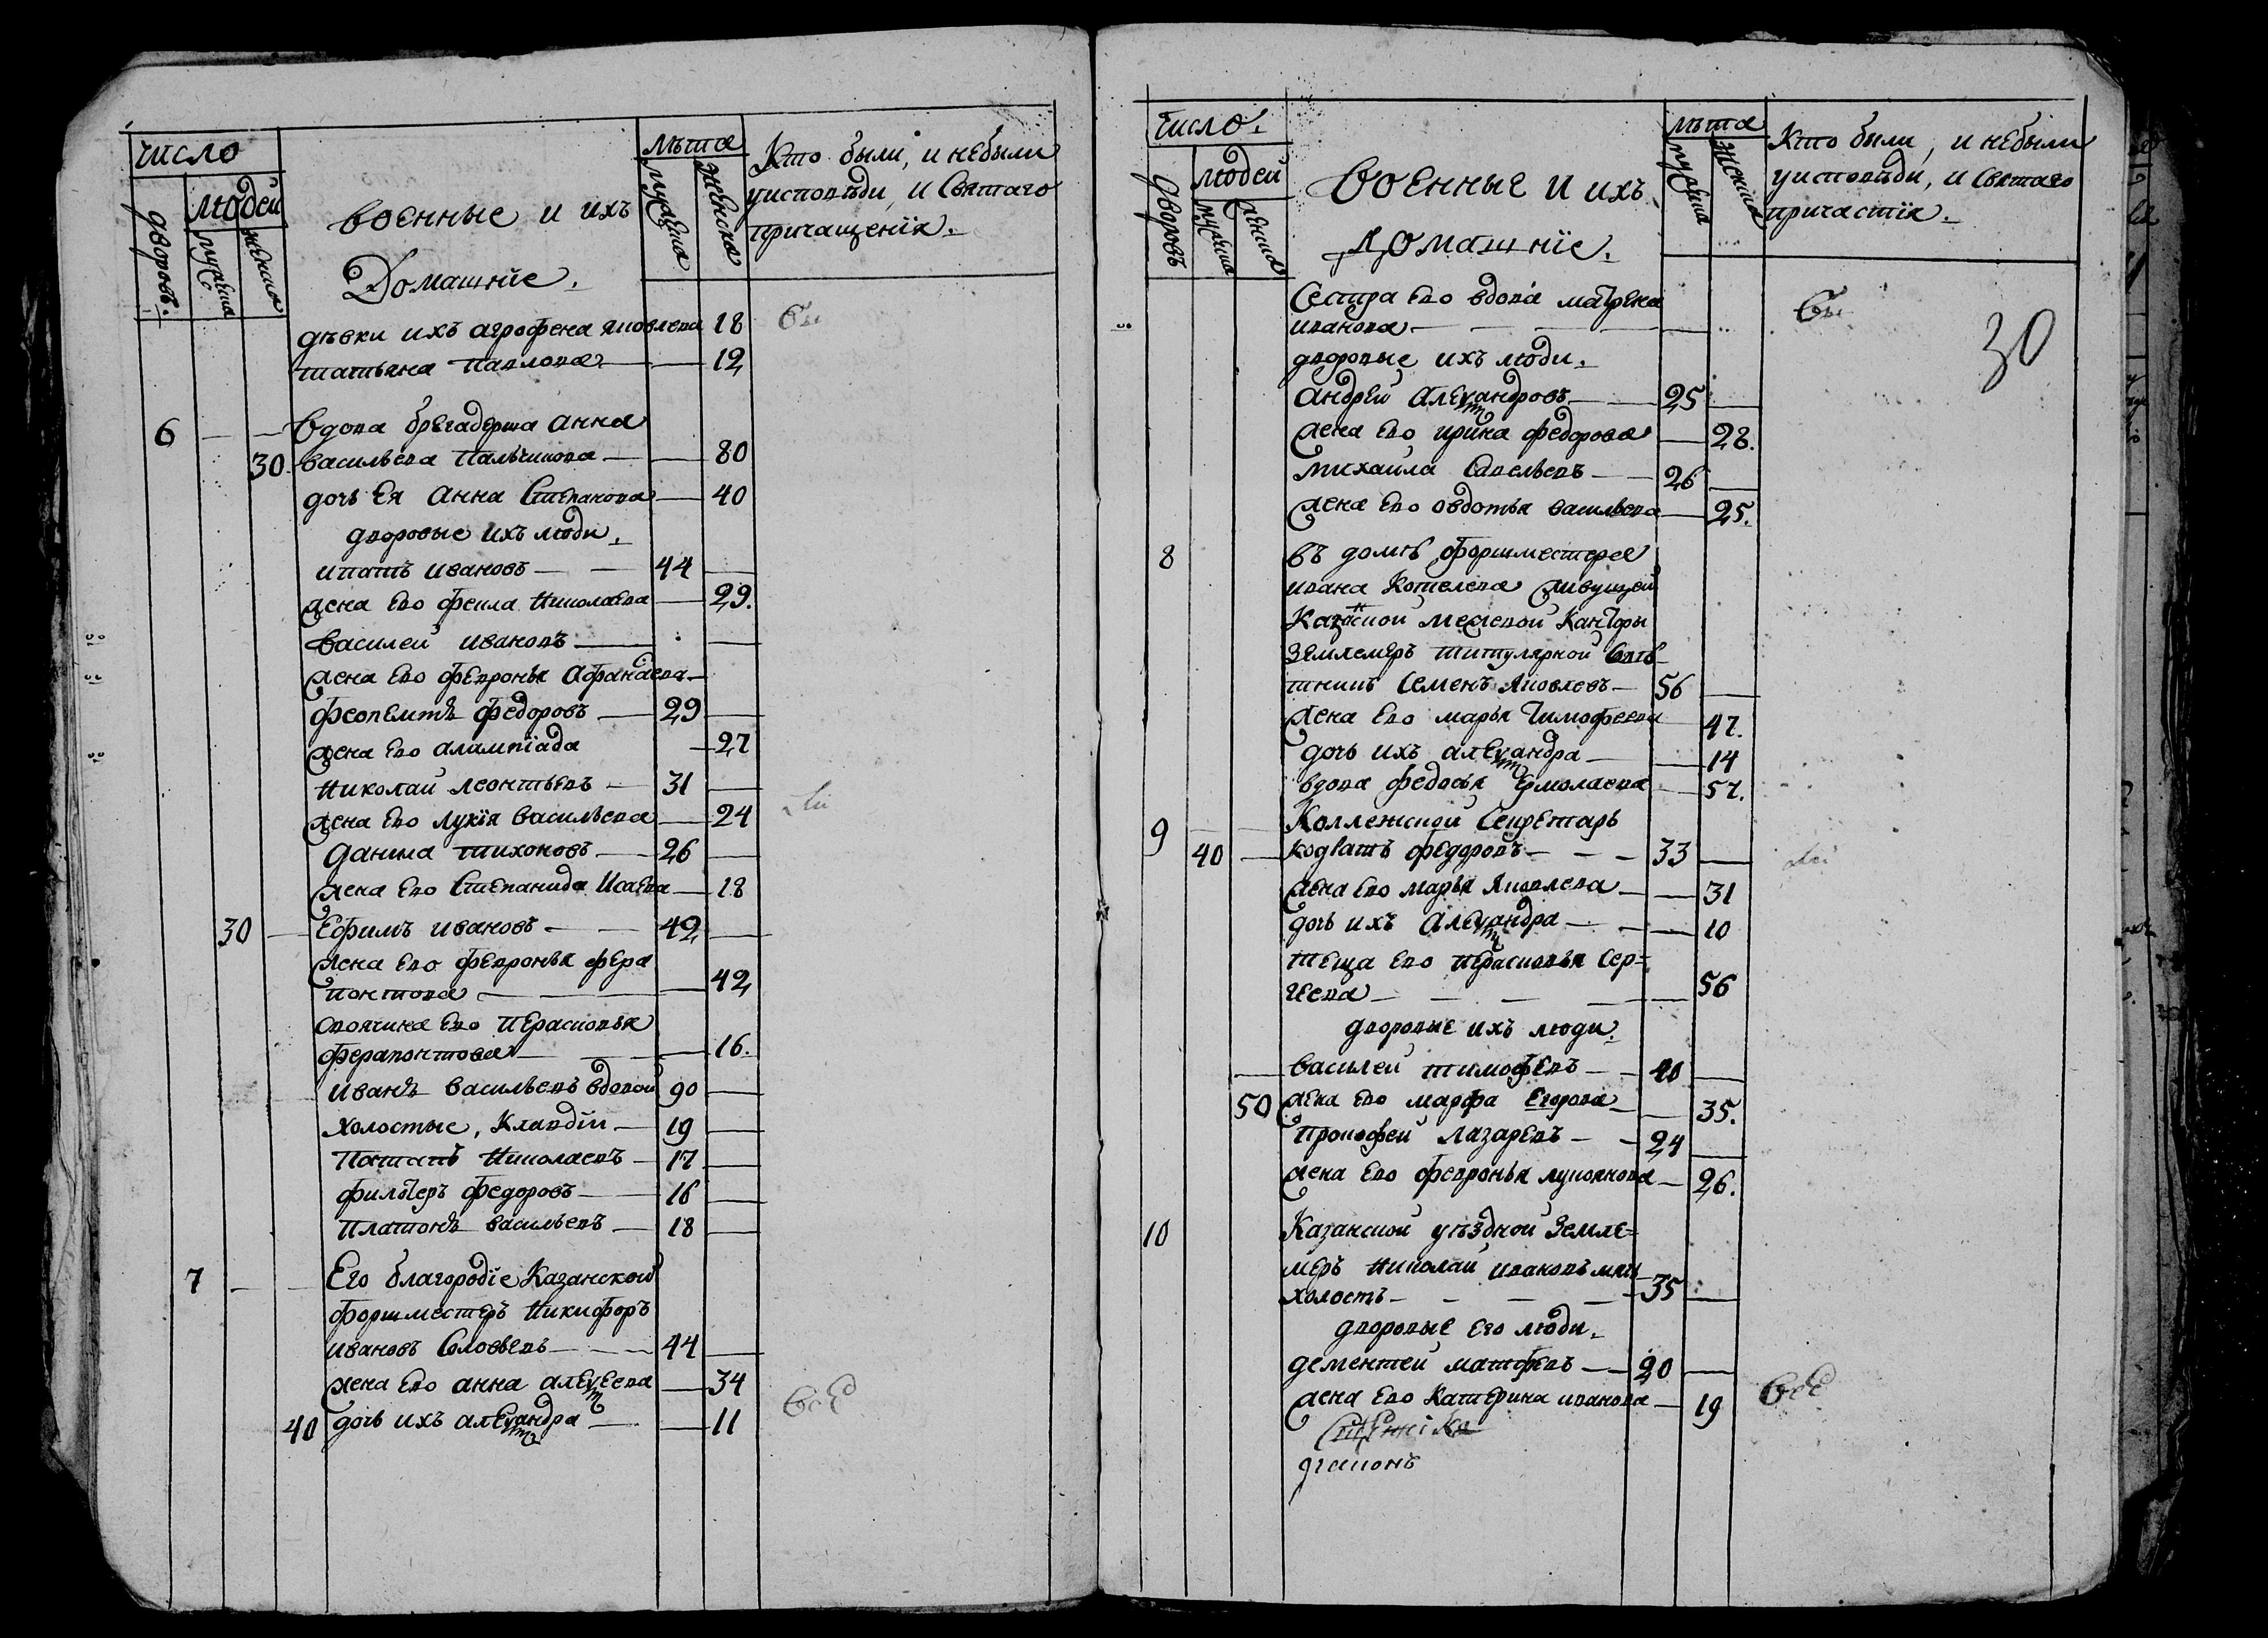 число
людей
дворовъ.
мужеска
женска
военные и ихъ
Домашнїе.
лѣта
мужеска
женска
Кто были, и небыли
уисповѣди, и Святаго
причащенїя.
дѣвки ихъ агрофена яковлева 18
татьяна павлова 12
6 вдова брегадерша анна
30. васильева Пальчикова 80
дочь Ея анна Степанова 40
дворовые ихъ люди.
ипатъ ивановъ 44
жена Ево фекла николаева 29.
василей ивановъ
жена Ево февронья афанасева
феопемтъ федоровъ 29
жена Ево алампïада 27
николай леонтьевъ 31
жена Ево лукїя васильева 24
данила тихоновъ 26
жена Ево Степанида Исаева 18
30 Ефимъ ивановъ 42
жена Ево февронья фера
понтова 42
своячина Ево Перасковья
ферапонтова 16.
иванъ васильевъ вдовой 90
холостые, Клавдїи 19
Потапъ николаевъ 17
филатеръ федоровъ 16
платонъ васильевъ 18
7 Его благородїе Казанской
форшместеръ никифоръ
ивановъ Словьевъ 44
жена Ево анна алеѯеева 34
40 дочь ихъ алеѯандра 11
всѣ
число.
людей
дворовъ
мужеска
женска
военные и ихъ
домашнїе.
лѣта
мужеска
женска
Кто были, и небыли
уисповѣди, и святаго
причастїя.
30
Сестра Ево вдова матрена
иванова
дворовые ихъ люди.
андрей алеѯандровъ 25
жена Ево ирина федорова 28.
михайла Савельевъ 26
жена Ево овдотья васильева 25.
8 въ домѣ форшместера
ивана Котелева живущей
Казанской межевой Канторы
Землемеръ титулярной Совѣ-
тникъ Семенъ яковлевъ 56
жена Ево марья Тимофеева 47.
дочь ихъ алеѯандра 14
вдова федосья Ермолаева 57.
9 Коллежской Секретарь
40 кодратъ федоровъ 33
жена Ево марья яковлева 31
дочь ихъ алеѯандра 10
теща Ево перасковья Сер-
геева 56
дворовые ихъ люди.
василей тимофѣевъ 40
50 жена Ево марфа Егорова 35.
прокофей лазаревъ 24
жена Ево февронья лукоянова 26.
10 Казанской уѣздной Земле-
меръ николай ивановъ
холостъ 35
дворовые его люди.
дементей матфѣевъ 20
жена Ево Катерина иванова 19
всѣ